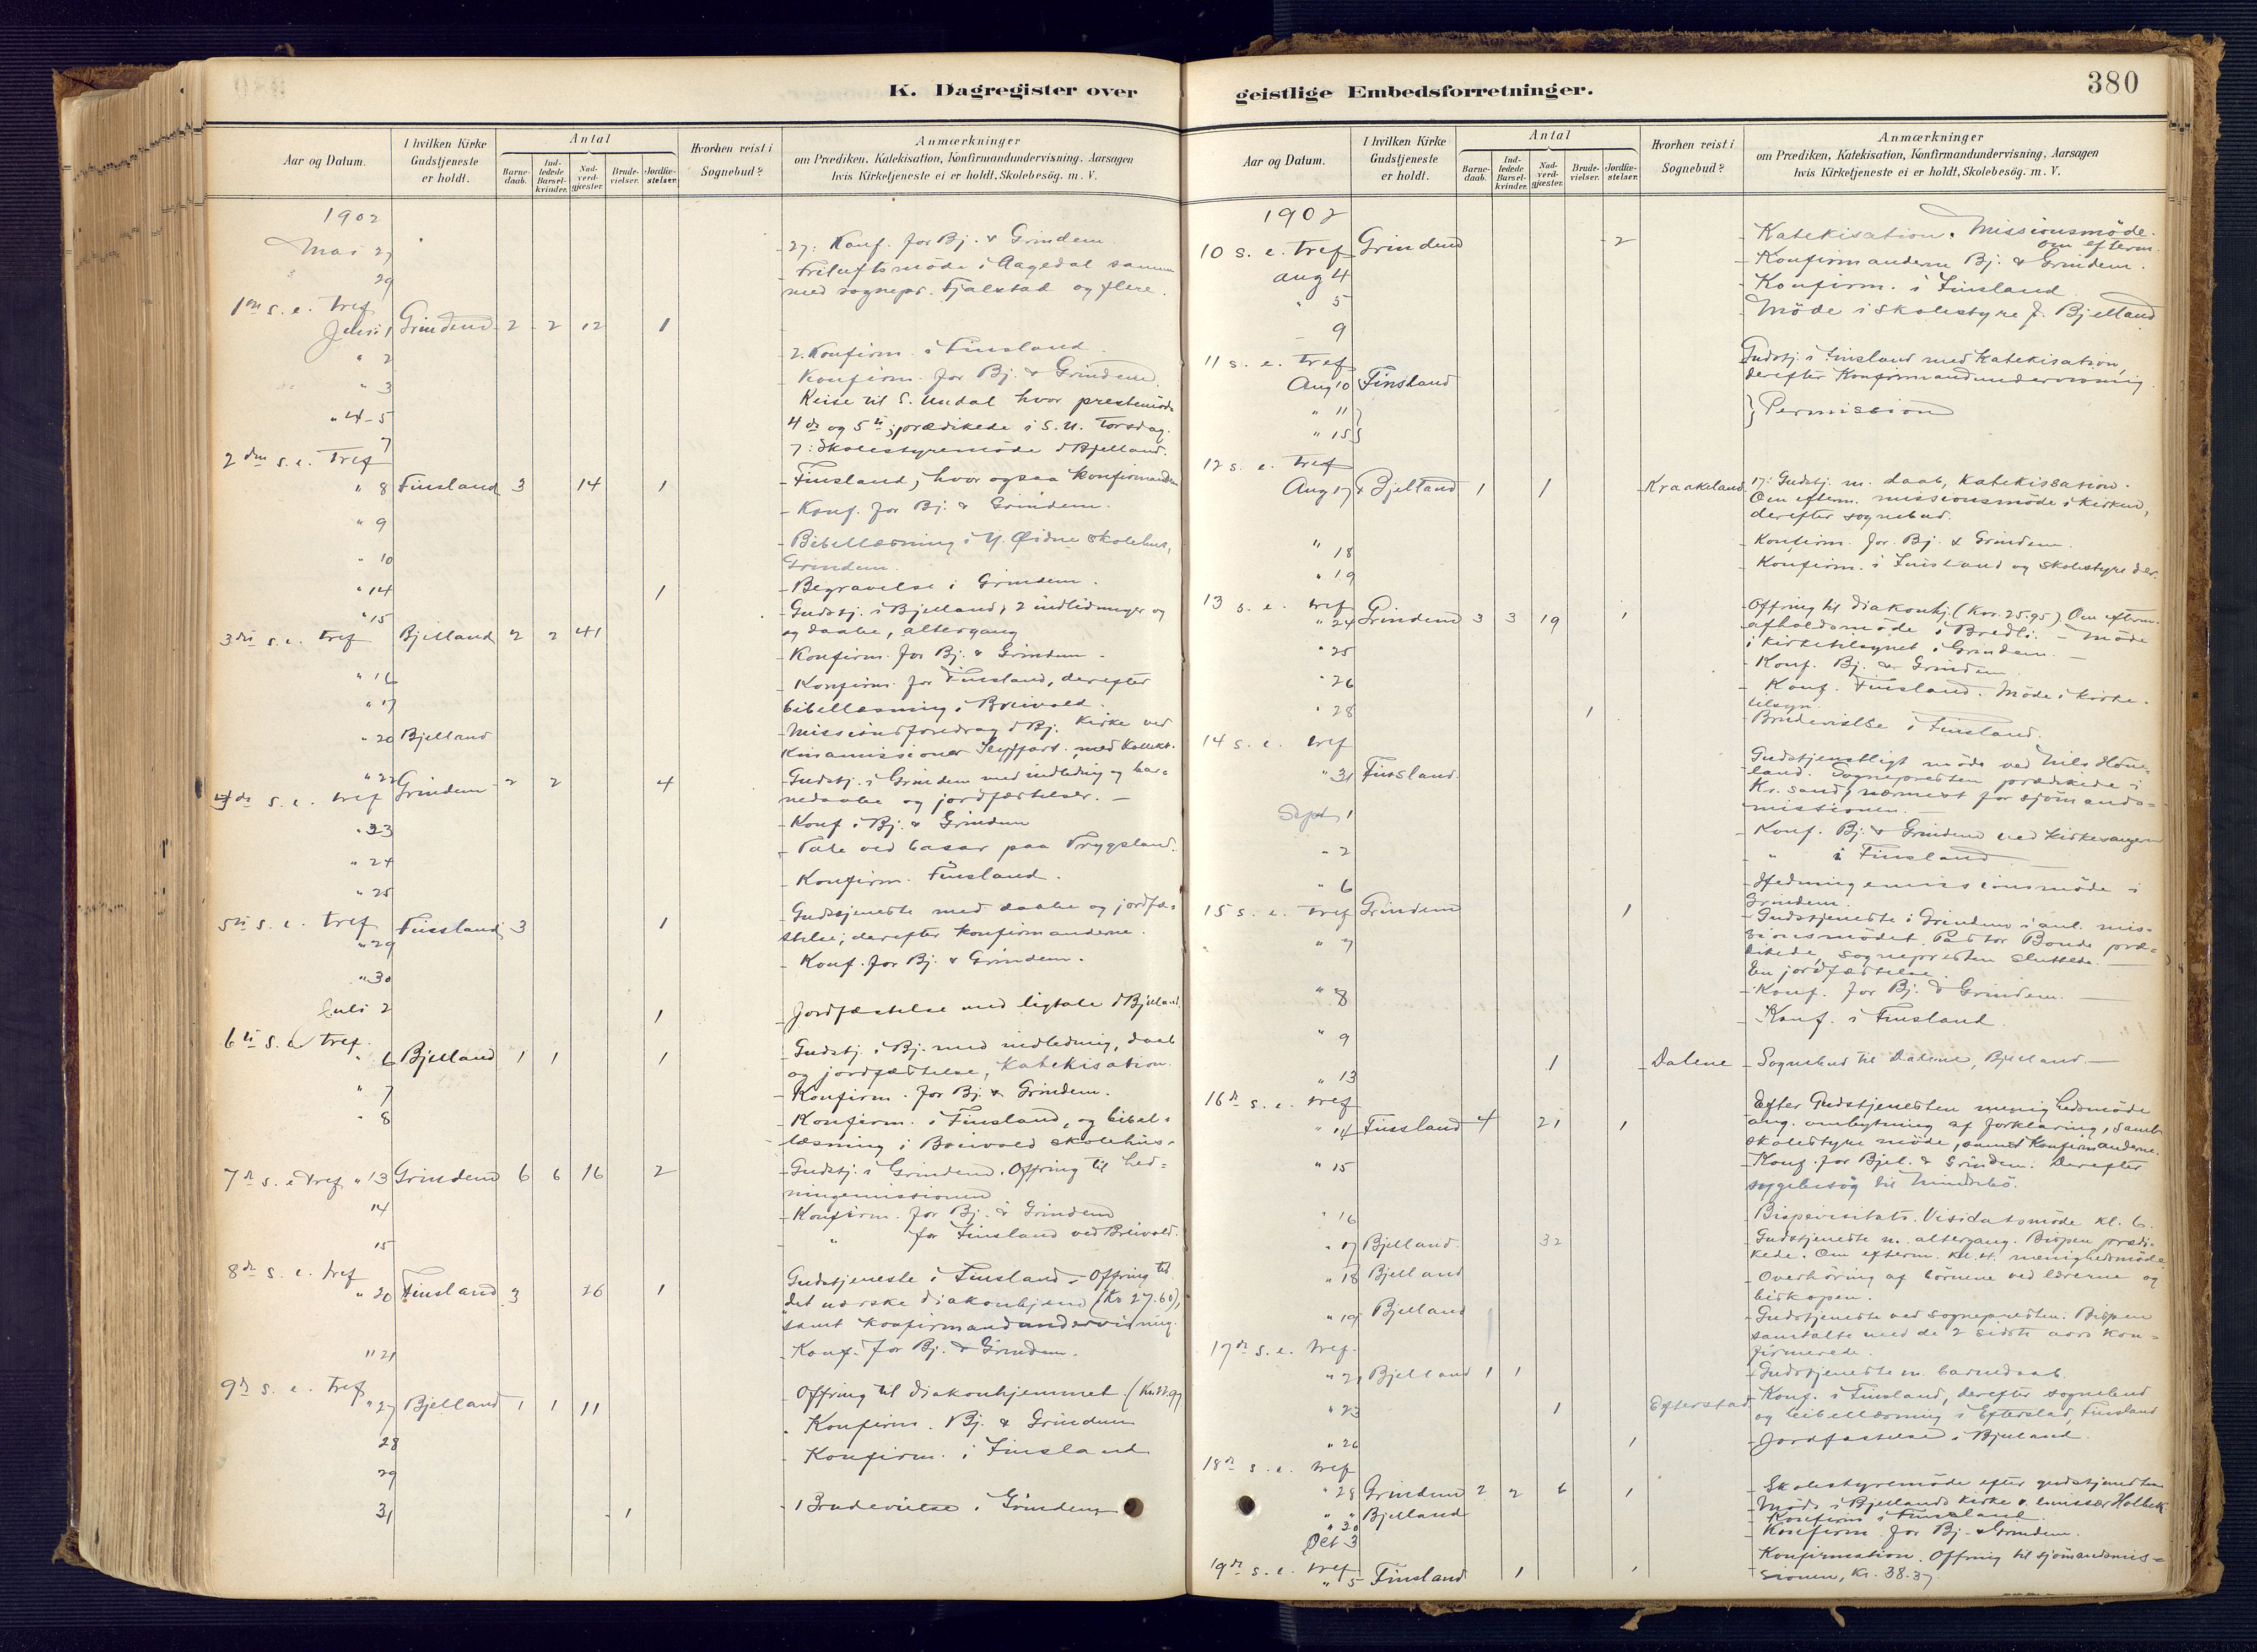 K. Dagregister over
Aar og Datum.
I hvilken Kirke Gudstjeneste er holdt.
Antal
Barne-daab.
Ind-ledede Barsel-kvinder.
Nad-verd-gjæster.
Brude-vielser.
Jordfæ-stelser.
Hvorhen reist i Sognebud?
Anmærkninger
om Prædiken, Katekisation, Konfirmandundervisning, Aarsagen
hvis Kirketjeneste ei er holdt, Skolebesög. m. V.
1902
Mai 27 - 27: Konf. for Bj. & Grindem
29 - Friluftsmöde i Aagedal sammen
med sognepr. Fjalstad og flere.
1ste s. e. tref
Juni 1 Grindem 2 2 12 1
" 2 - 2. Konfirm. i Finsland
" 3 - Konfirm. for Bj. & Grindem.
" 4-5 Reise til S. Undal hvor prestemöde
4de og 5te; prædikede i S. U. Torsdag.
7 - 7: Skolestyremöde i Bjelland.
2den s. e. Tref
" 8 Finsland 3 14 1 - Finsland, hvor ogsaa konfirmanden
" 9 - Konf. for Bj. & Grindem.
" 10 - Bibellæsning i Y. Øidne skolehus,
Grindem.
" 14 1 - Begravelse i Grindem.
" 15 - Gudstj. i Bjelland, 2 indledninger og
3die s. e. tref Bjelland 2 2 41 og daabe, altergang
" 16 - Konfirm. for Bj. & Grindem
" 17 - Konfirm. for Finsland, derefter
bibellæsning i Breivold.
" 20 Bjelland - Missionsforedrag i Bj. Kirke ved
Kinamissionær Seyffart, med Kollekt.
" 22 Grindem 2 2 4 - Gudstj. i Grindem med indledning og bar=
4de s. e. tref nedaabe og jordfæstelser. -
" 23 - Konf. i Bj. & Grindem
" 24 - Tale ved basar paa Trygsland.
" 25 - Konfirm. Finsland.
5te s. e. tref Finsland 3 1 - Gudstjeneste med daabe og jordfæ=
" 29 stelse; derefter konfirmanderne.
" 30 - Konf. for Bj. & Grindem.
Juli 2 1 - Jordfæstelse med ligtale i Bjelland.
6te s. e. tref.
" 6 Bjelland 1 1 1 - Gudstj. i Bj. med indledning, daab
og jordfæstelse, Katekisation.
" 7 - Konfirm. for Bj. & Grindem.
" 8 - Konfirm. i Finsland, og bibel=
læsning i Breivold skolehus.
7de s. e. tref " 13 Grindem 6 6 16 2 - Gudstj. i Grindem. Offring til hed=
ningemissionen
14 - Konfirm. for Bj. & Grindem
15 - " for Finsland ved Breivold.
8de s. e. tref
" 20 Finsland 3 26 1 Gudstjeneste i Finsland. Offring til
det norske diakonhjem (Kr 27.60),
samt konfirmandundervisning.
" 21 - Konf. for Bj. & Grindem.
9de s. e. tref
" 27 Bjelland 1 1 11 Offring til diakonhjemmet. (Kr. 22.97
28 - Konfirm. Bj. & Grindem
29 - Konfirm. i Finsland
31 1 - 1 Brudevielse i Grindem
geistlige Embedsforretninger.
380
Aar og Datum.
I hvilken Kirke Gudstjeneste er holdt.
Antal
Barne-daab.
Ind-ledede Barsel-kvinder.
Nad-verd-gjæster.
Brude-vielser.
Jordfæ-stelser.
Hvorhen reist i Sognebud?
Anmærkninger
om Prædiken, Katekisation, Konfirmandundervisning, Aarsagen
hvis Kirketjeneste ei er holdt, Skolebesög. m. V.
1902
10 s. e. tref Grindem 2 - Katekisation. Missionsmöde
om efterm.
aug 4 - Konfirmanderne Bj. & Grindem.
" 5 - Konfirm. i Finsland
9 - Möde i skolestyre f. Bjelland
11 s. e. tref
Aug 10 Finsland Gudstj. i Finsland med Katekisation,
derefter Konfirmandundervisning.
" 11 } Permission
" 15
12 s. e. tref
Aug 17 Bjelland 1 1 - Kraakeland 17: Gudstj. m. daab, Katekisation.
Om efterm. missionsmöde i kirken,
derefter sognebud.
" 18 - Konfirm. for Bj. & Grindem.
" 19 - Konfirm. i Finsland og skolestyre der.
13 s. e. tref
" 24 Grindem 3 3 19 1 - Offring til diakonhj. (Kr. 25.95) Om efterm.
afholdsmöde i Bredli. - Möde
i kirketilsynet i Grindem. -
" 25 - Konf. Bj. & Grindem.
" 26 - Konf. Finsland. Möde i kirke-
tilsyn.
" 28 1 - Brudevielse i Finsland.
14 s. e. tref
" 31 Finsland. Gudstjenstligt möde ved Nils Höne=
land. Sognepresten prædikede i
Kr. sand, nærmest for sjömands=
missionen.
Sept 1 - Konf. Bj. & Grindem ved kirkesangeren
" 2 - " i Finsland
" 6 - Hedningemissionsmöde i
Grindem.
15 s. e. tref Grindem 1 - Gudstjeneste i Grindem i anl. mis=
" 7 sionsmödet. Pastor Bonde præ=
dikede, sognepresten sluttede. -
En jordfæstelse.
" 8 - Konf. for Bj. & Grindem. -
" 9 - Konf. i Finsland.
" 13 1 - Dalene - Sognebud til Dalene, Bjelland. -
16de s. e. tref
" 14 Finsland 4 21 1 Efter Gudstjenesten menighedsmöde
ang. ombytning af forklaring, samt
skolestyremöde, samt Konfirmanderne.
" 15 - Konf. for Bjel. & Grindem. Derefter
sygebesög til
" 16 - Bispevisitats. Visitatsmöde kl. 6.
" 17 Bjelland 32 - Gudstjeneste m. altergang. Bispen prædi=
kede. Om efterm. kl. 4. menighedsmöde
" 18 Bjelland - Overhöring af börnene ved lærerne og
biskopen.
" 19 Bjelland - Gudstjeneste ved sognepresten. Bispen
samtalte med de 2 sidste aars kon=
firmerede.
17de s. e. tref.
" 21 Bjelland 1 1 - Gudstjeneste m. barnedaab.
" 23 1 Efterstad - Konf. i Finsland, derefter sognebud
og bibellæsning i Efterstad, Finsland
" 26 1 - Jordfæstelse i Bjelland.
18de s. e. tref
" 28 Grindem 2 2 6 1 - Skolestyremöde efter gudstjenesten
" " Bjelland - Möde i Bjellands kirke v. emissær Holbek
" 30 - Konfirm i Finsland
Oct 3 - Konfirm. for Bj. & Grindem.
19de s. e. tref
" 5 Finsland 1 1 Konfirmation. Offring til sjömandsmis=
sionen, Kr. 38.37